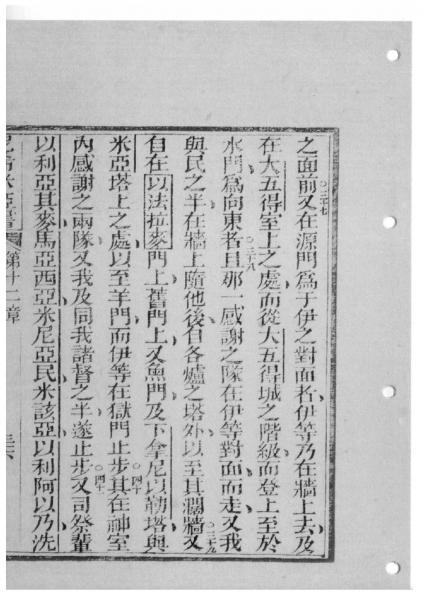 之面前又在源門爲于伊之對面者伊等乃在牆上去及
〇三十七
在大五得室上之處而從大五得城之階級而登上至於
水門爲向東者且那一感謝之隊在伊等對面而走又我
〇三十八
與民之半在牆上隨他後自各爐之塔外以至其濶牆又
〇三十九
自在以法拉麥門上舊門上又魚門及下拿尼以勒塔與
米亞塔上之處以至羊門而伊等在獄門止步其在神室
〇四十
內感謝之兩隊又我及同我諸督之半遂止步又司祭輩
〇四十一
以利亞其麥馬亞西亞米尼亞民米該亞以利阿以乃洗
尼希米亞書
第十二章